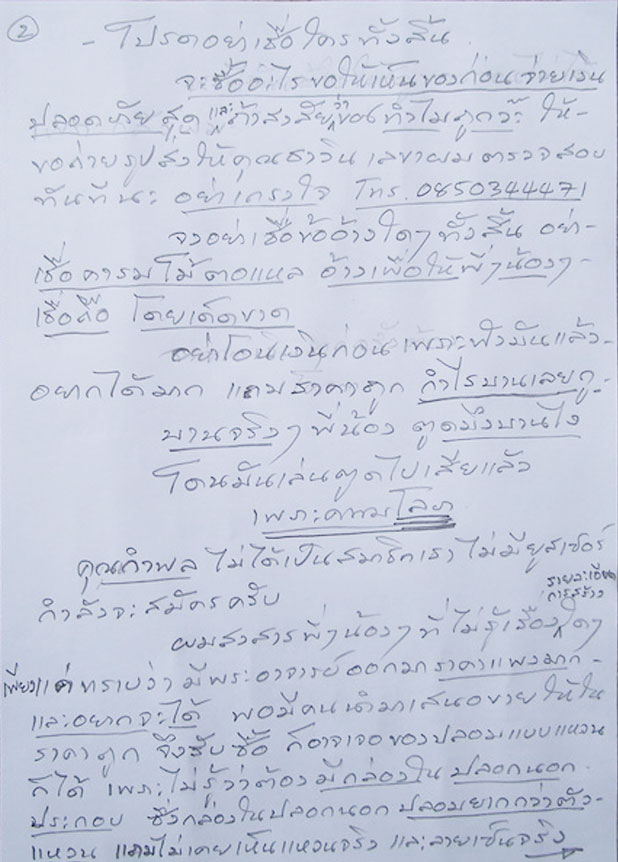 2
- โปรดอย่าเชื่อใครทั้งสิ้น
จะซื้ออะไรขอให้เห็นของก่อนจ่ายเงิน
ปลอดภัยสุด และถ้าสงสัยว่าของทำไมถูกวะ ให้-
ขอถ่ายรูปส่งให้คุณธาวิน เลขาผมตรวจสอบ
ทันทีนะ อย่าเกรงใจ โทร. 0850344471
จงอย่าเชื่อข้ออ้างใดๆทั้งสิ้น อย่า-
เชื่อคารมโม้ตอแหล อ้างเพื่อให้พี่ๆน้องๆ-
เชื่อถือ โดยเด็ดขาด
อย่าโอนเงินก่อน เพราะฟังมันแล้ว-
อยากได้มาก แถมราคาถูก กำไรบานเลยกู-
บานจริงๆ พี่น้อง ตูดมึงบานไง
โดนมันเล่นตูดไปเสียแล้ว
เพราะความโลภ
คุณกำพล ไม่ได้เป็นสมาชิกเรา ไม่มียูสเซอร์
กำลังจะสมัครครับ
ผมสงสารพี่ๆน้องๆที่ไม่รู้เรื่องรายละเอียดการสร้างใดๆ
เพียงแค่ทราบว่า มีพระอาจารย์ออกมาราคาแพงมาก-
และอยากจะได้ พอมีคนนำมาเสนอขายให้ใน
ราคาถูก จึงรีบซื้อ ก็อาจเจอของปลอมแบบแหวน
ก็ได้ เพราะไม่รู้ว่าต้องมีกล่องใน ปลอกนอก
ประกอบ ซึ่งกล่องในปลอกนอก ปลอมยากกว่าตัว-
แหวน แถมไม่เคยเห็นแหวนจริง และลายเซ็นจริง